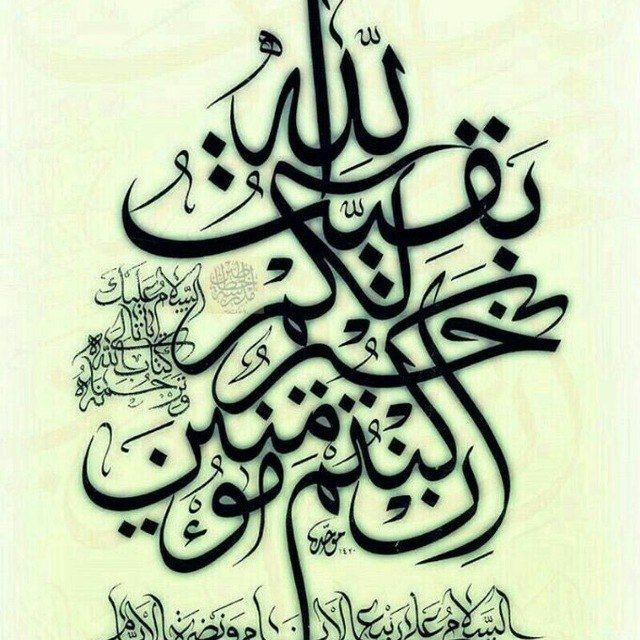 بَقِيَّتُ اللَّهِ
خَيْرٌ لَكُمْ
إِنْ كُنْتُمْ مُؤْمِنِينَ
السلام عليك
يا تالي
كتاب الله
و ترجمانه
موحد
١٤٢٠
السلام على ربيع الأنام و نضرة الأيام